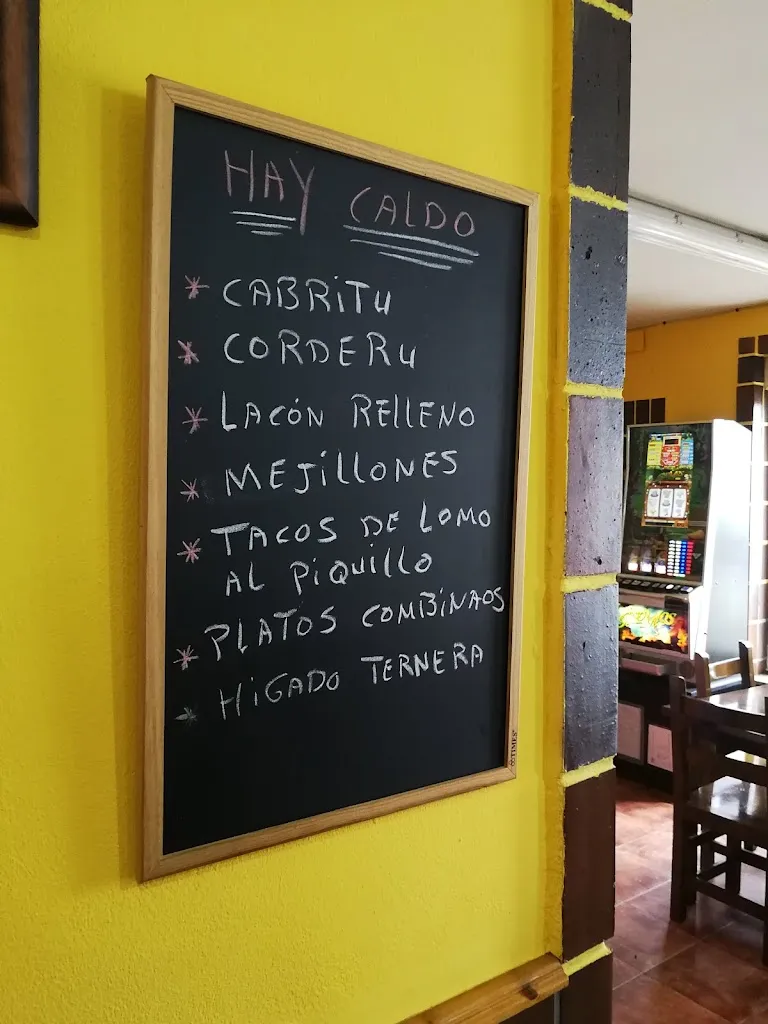 HAY CALDO
* CABRITU
* CORDERU
* LACÓN RELLENO
* MEJILLONES
* TACOS DE LOMO
AL PIQUILLO
* PLATOS COMBINAOS
* HIGADO TERNERA
TIMES